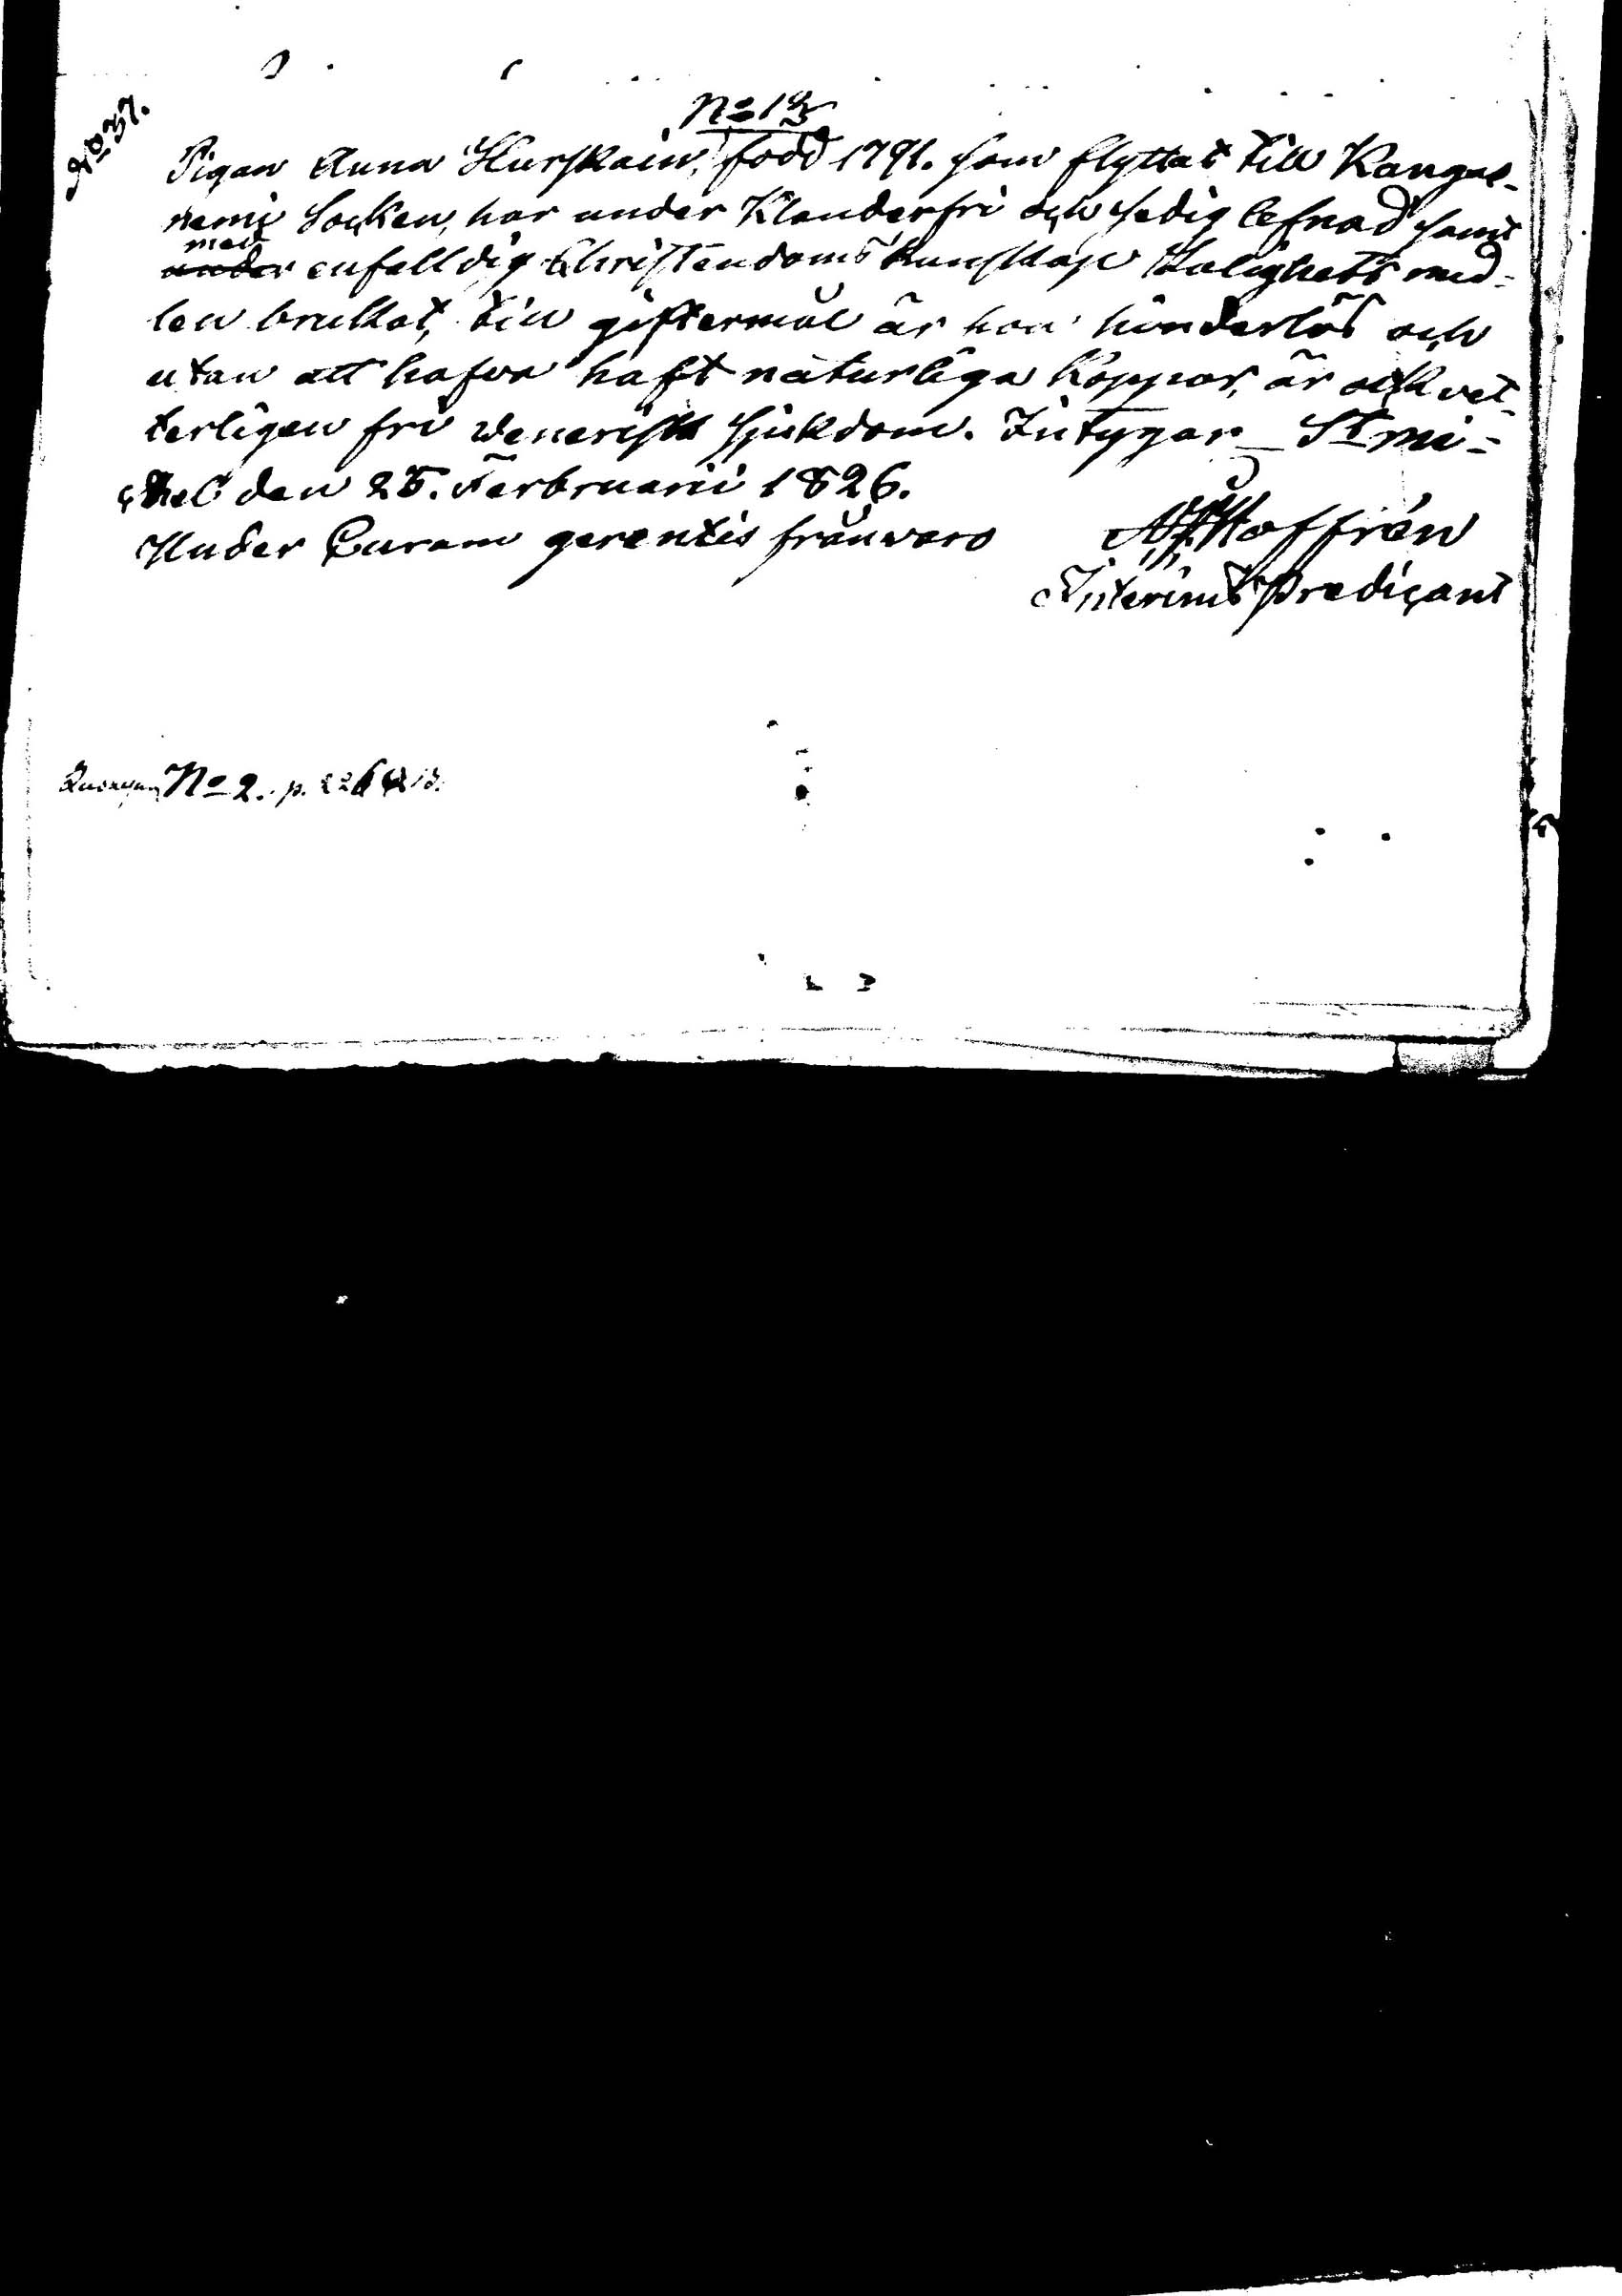 No 37.
No 13
Pigan Anna Hurskain, född 1791. som flyttat till Kangas-
nemi Socken, har under Klanderfri och sedig lefnad samt
med
under enfalldig Christendoms kunskap Salighets med-
len brukat, till giftermål är hon hinderlös och
utan att hafva haft naturliga Koppor, är ock vet-
terligen fri Venerisk sjukdom. Intygar St mi-
chel den 25. Ferbruarii 1826.
Under Curam gerentis frånvaro
Hoffrén
Interims Predicant
No 2. p.